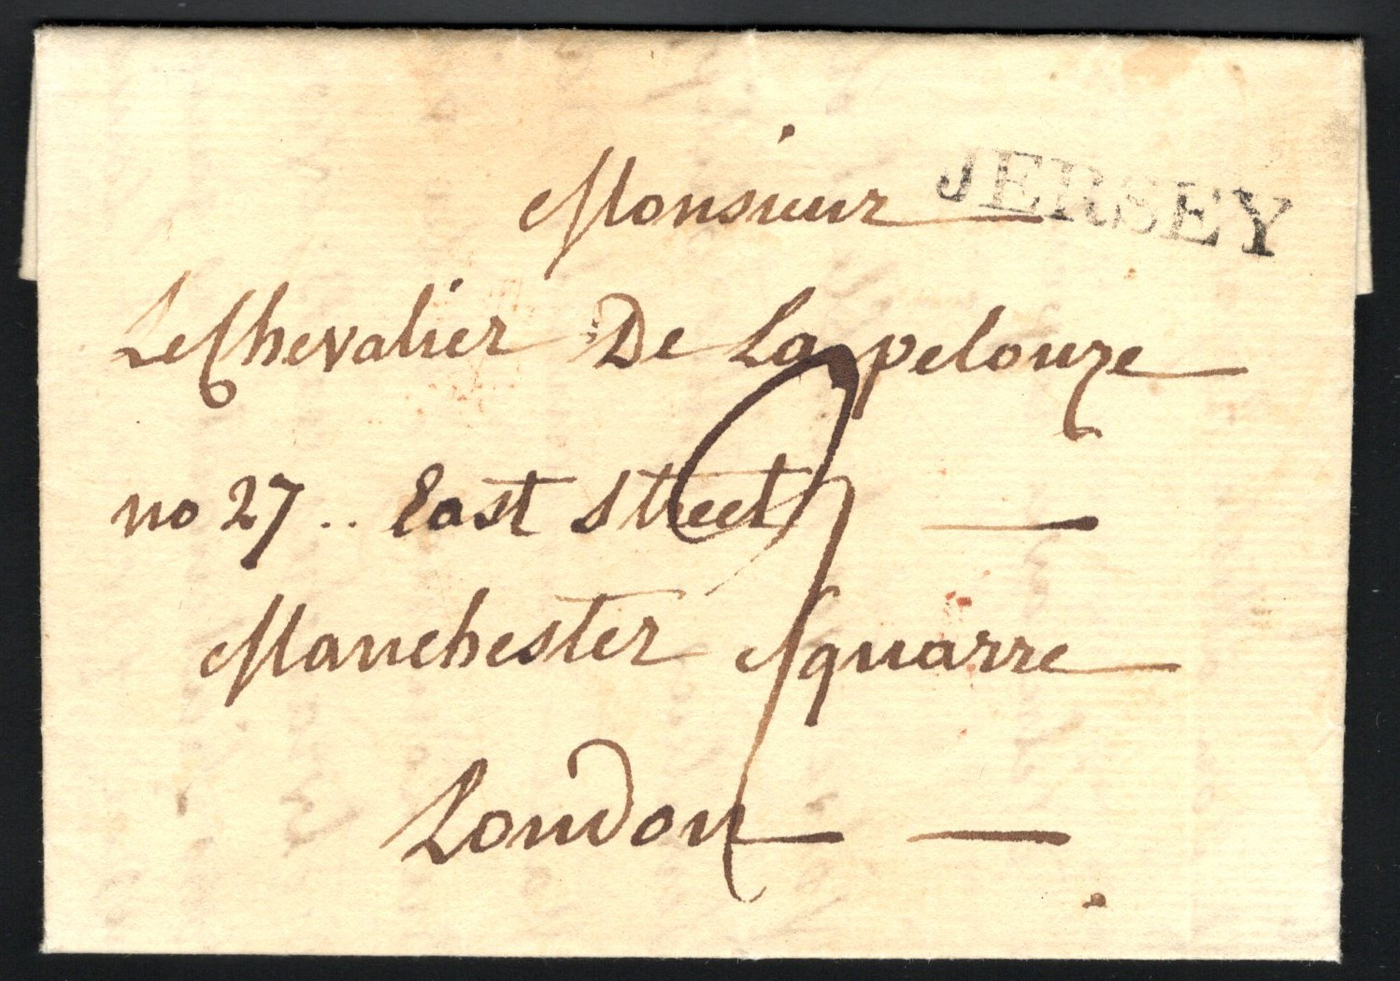 Monsieur JERSEY
Le Chevalier De La pelouze
no 27 .. East Street
Manchester Squarre
London
9